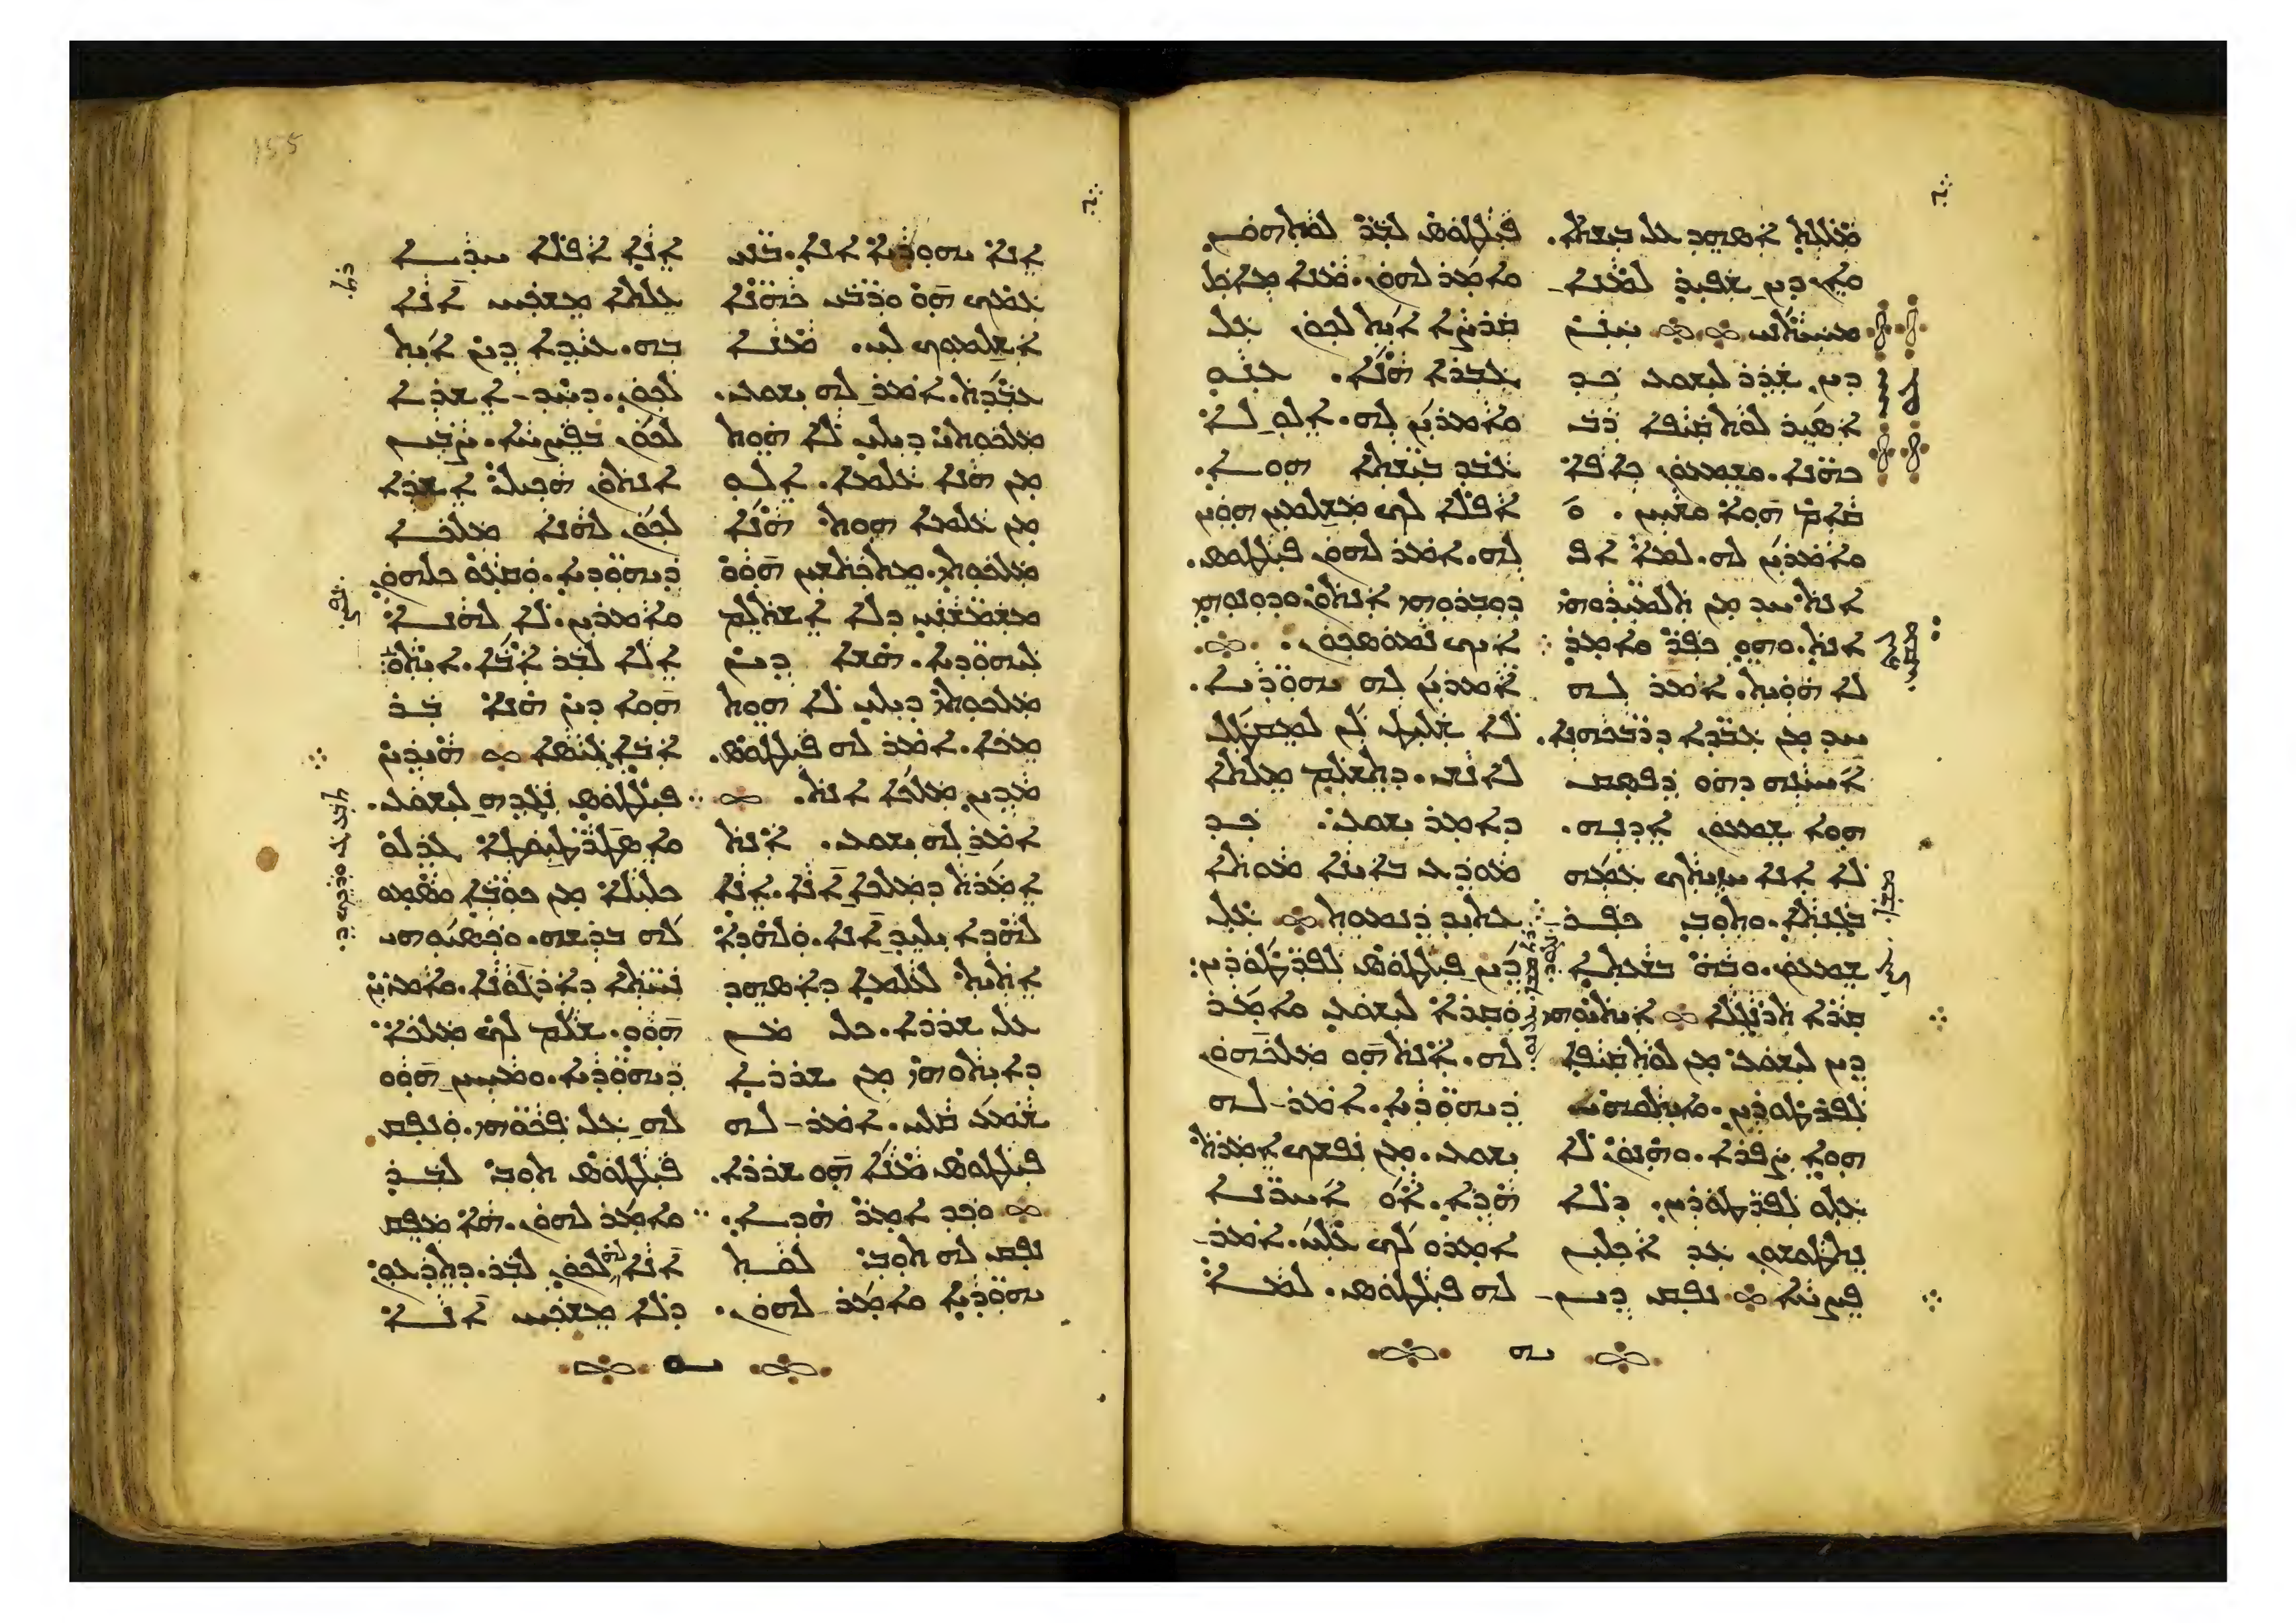 ܡܠܠܬ ܐܣܗܕ ܥܠ ܒܝܫܬܐ.
ܘܐܢ ܕܝܢ ܫܦܝܪ ܠܡܢܐ
ܡܚܝܬܢܝ ܚܢܢ
ܕܝܢ ܫܕܪ ܠܝܫܘܥ ܟܕ
ܐܣܝܪ ܠܘܬ ܩܝܦܐ ܪܒ
ܟܗܢܐ. ܘܫܡܥܘܢ ܟܐܦܐ
ܩܐܡ ܗܘܐ ܘܫܚܢ. ܘ
ܘܐܡܪܝܢ ܠܗ. ܠܡܐ ܐܦ
ܐܢܬ ܚܕ ܡܢ ܬܠܡܝܕܘܗܝ
ܐܢܬ. ܘܗܘ ܟܦܪ ܘܐܡܪ
ܠܐ ܗܘܝܬ. ܐܡܪ ܠܗ
ܚܕ ܡܢ ܥܒܕܐ ܕܪܒܟܗܢܐ.
ܐܚܝܢܗ ܕܗܘ ܕܦܣܩ
ܗܘܐ ܫܡܥܘܢ ܐܕܢܗ.
ܠܐ ܐܢܐ ܚܙܝܬܟ ܥܡܗ
ܒܓܢܬܐ. ܘܬܘܒ ܟܦܪ
ܫܡܥܘܢ. ܘܒܗ ܒܫܥܬܐ
ܩܪܐ ܬܪܢܓܠܐ ܐܝܬܝܘܗܝ
ܕܝܢ ܠܝܫܘܥ ܡܢ ܠܘܬ ܩܝܦܐ
ܠܦܪܛܘܪܝܢ. ܘܐܝܬܘܗܝ
ܗܘܐ ܨܦܪܐ. ܘܗܢܘܢ ܠܐ
ܥܠܘ ܠܦܪܛܘܪܝܢ. ܕܠܐ
ܢܬܛܘܫܘܢ ܥܕ ܐܟܠܝܢ
ܦܨܚܐ ܢܦܩ ܕܝܢ
ܦܝܠܛܘܣ ܠܒܪ ܠܘܬܗܘܢ
ܘܐܡܪ ܠܗܘܢ. ܡܢܐ ܡܐܟܠ
ܩܪܨܐ ܐܝܬ ܠܟܘܢ ܥܠ
ܓܒܪܐ ܗܢܐ. ܥܢܘ
ܘܐܡܪܝܢ ܠܗ. ܐܠܘ ܠܐ
ܥܒܕ ܒܝܫܬܐ ܗܘܐ.
ܐܦܠܐ ܠܟ ܡܫܠܡܝܢ ܗܘܝܢ
ܠܗ. ܐܡܪ ܠܗܘܢ ܦܝܠܛܘܣ.
ܕܘܒܪܘܗܝ ܐܢܬܘܢ ܘܕܘܢܘܗܝ
ܐܝܟ ܢܡܘܣܟܘܢ.
ܐܡܪܝܢ ܠܗ ܝܗܘܕܝܐ.
ܠܐ ܫܠܝܛ ܠܢ ܠܡܩܛܠ
ܠܐܢܫ. ܕܬܫܠܡ ܡܠܬܐ
ܕܐܡܪ ܝܫܘܥ. ܟܕ
ܡܘܕܥ ܒܐܝܢܐ ܡܘܬܐ
ܥܬܝܕ ܕܢܡܘܬ ܥܠ
ܕܝܢ ܦܝܠܛܘܣ ܠܦܪܛܘܪܝܢ
ܘܩܪܐ ܠܝܫܘܥ ܘܐܡܪ
ܠܗ. ܐܢܬ ܗܘ ܡܠܟܗܘܢ
ܕܝܗܘܕܝܐ. ܐܡܪ ܠܗ
ܝܫܘܥ. ܡܢ ܢܦܫܟ ܐܡܪܬ
ܗܕܐ. ܐܘ ܐܚܪܢܐ
ܐܡܪܘ ܠܟ ܥܠܝ. ܐܡܪ
ܠܗ ܦܝܠܛܘܣ. ܠܡܐ
ܐܢܐ ܝܗܘܕܝܐ ܐܢܐ. ܒܢܝ
ܥܡܟ ܗܘ ܘܪܒܝ ܟܗܢܐ
ܐܫܠܡܘܟ ܠܝ. ܡܢܐ
ܥܒܕܬ. ܐܡܪ ܠܗ ܝܫܘܥ.
ܡܠܟܘܬܐ ܕܝܠܝ ܠܐ ܗܘܬ
ܡܢ ܗܢܐ ܥܠܡܐ. ܐܠܘ
ܡܢ ܥܠܡܐ ܗܘܬ ܗܢܐ
ܡܠܟܘܬܝ. ܡܬܟܬܫܝܢ ܗܘܘ
ܡܫܡܫܢܝ ܕܠܐ ܐܫܬܠܡ
ܠܝܗܘܕܝܐ. ܗܫܐ ܕܝܢ
ܡܠܟܘܬܐ ܕܝܠܝ ܠܐ ܗܘܬ
ܡܟܐ. ܐܡܪ ܠܗ ܦܝܠܛܘܣ.
ܡܕܝܢ ܡܠܟܐ ܐܢܬ.
ܐܡܪ ܠܗ ܝܫܘܥ. ܐܢܬ
ܐܡܪܬ ܕܡܠܟܐ ܐܢܐ. ܐܢܐ
ܠܗܕܐ ܝܠܝܕ ܐܢܐ. ܘܠܗܕܐ
ܐܬܝܬ ܠܥܠܡܐ ܕܐܣܗܕ
ܥܠ ܫܪܪܐ. ܟܠ ܡܢ
ܕܐܝܬܘܗܝ ܡܢ ܫܪܪܐ
ܫܡܥ ܩܠܝ. ܐܡܪ ܠܗ
ܦܝܠܛܘܣ ܡܢܐ ܗܘ ܫܪܪܐ.
ܘܟܕ ܐܡܪ ܗܕܐ.
ܢܦܩ ܠܗ ܬܘܒ ܠܘܬ
ܝܗܘܕܝܐ ܘܐܡܪ ܠܗܘܢ.
ܐܢܐ ܐܦܠܐ ܚܕܐ
ܥܠܬܐ ܡܫܟܚ ܐܢܐ
ܒܗ. ܥܝܕܐ ܕܝܢ ܐܝܬ
ܠܟܘܢ. ܕܚܕ ܐܫܪܐ
ܠܟܘܢ ܒܦܨܚܐ. ܨܒܝܢ
ܐܢܬܘܢ ܗܟܝܠ ܐܫܪܐ
ܠܟܘܢ ܠܗܢܐ ܡܠܟܐ
ܕܝܗܘܕܝܐ. ܘܩܥܘ ܟܠܗܘܢ
ܘܐܡܪܝܢ. ܠܐ ܠܗܢܐ
ܐܠܐ ܠܒܪ ܐܒܐ. ܐܝܬܘܗܝ
ܗܘܐ ܕܝܢ ܗܢܐ ܒܪ
ܐܒܐ ܓܝܣܐ ܗܝܕܝܢ
ܦܝܠܛܘܣ ܢܓܕܗ ܠܝܫܘܥ.
ܘܐܣܛܪܛܝܘܛܐ ܓܕܠܘ
ܟܠܝܠܐ ܡܢ ܟܘܒܐ ܘܣܡܘ
ܠܗ ܒܪܫܗ. ܘܟܣܝܘܗܝ
ܢܚܬܐ ܕܐܪܓܘܢܐ. ܘܐܡܪܝܢ
ܗܘܘ. ܫܠܡ ܠܟ ܡܠܟܐ
ܕܝܗܘܕܝܐ. ܘܡܚܝܢ ܗܘܘ
ܠܗ ܥܠ ܦܟܘܗܝ. ܘܢܦܩ
ܦܝܠܛܘܣ ܬܘܒ ܠܒܪ
ܘܐܡܪ ܠܗܘܢ. ܗܐ ܡܦܩ
ܐܢܐ ܠܗ ܠܟܘܢ ܠܒܪ. ܕܬܕܥܘܢ
ܕܠܐ ܡܫܟܚ ܐܢܐ
155